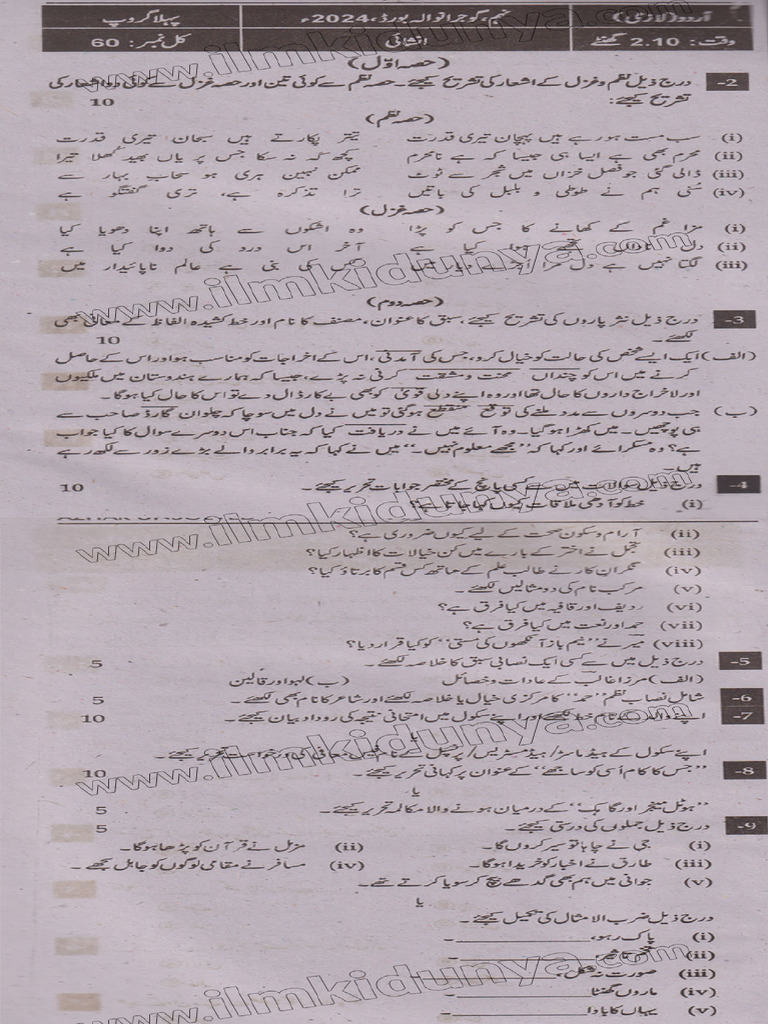 اُردو (لازمی) نہم، گوجرانوالہ بورڈ، 2024ء پہلا گروپ
وقت: 2.10 گھنٹے انشائی کل نمبر: 60
(حصہ اوّل)
2- درج ذیل نظم و غزل کے اشعار کی تشریح کیجئے۔ حصہ نظم سے کوئی تین اور حصہ غزل سے کوئی دو اشعار کی
تشریح کیجئے: 10
(حصہ نظم)
(i) سب مست ہو رہے ہیں پہچان تیری قدرت تیتر پکارتے ہیں سبحان تیری قدرت
(ii) محرم بھی ہے ایسا ہی جیسا کہ ہے نا محرم کچھ کہہ نہ سکا جس پر یاں بھید کھلا تیرا
(iii) ڈالی گئی جو فصل خزاں میں شجر سے ٹوٹ ممکن نہیں ہری ہو سحاب بہار سے
(iv) سُنی ہم نے طوطی و بلبل کی باتیں ترا تذکرہ ہے، تری گفتگو ہے
(حصہ غزل)
(i) مزا غم کے کھانے کا جس کو پڑا وہ اشکوں سے ہاتھ اپنا دھویا کیا
(ii) دل کیا ہے آخر اس درد کی دوا کیا ہے
(iii) لگتا نہیں ہے دل مرا کی بنی ہے عالم ناپائیدار میں
(حصہ دوم)
3- درج ذیل نثر پاروں کی تشریح کیجئے، سبق کا عنوان، مصنف کا نام اور خط کشیدہ الفاظ کے معانی بھی
لکھئے۔ 10
(الف) ایک ایسے شخص کی حالت کو خیال کرو، جس کی آمدنی، اس کے اخراجات کو مناسب ہو اور اس کے حاصل
کرنے میں اس کو چنداں محنت و مشقت کرنی نہ پڑے، جیسا کہ ہمارے ہندوستان میں ملکیوں
اور لاخراج داروں کا حال تھا اور وہ اپنے دلی قویٰ کو بھی بے کار ڈال دے تو اس کا حال کیا ہوگا۔
(ب) جب دوسروں سے مدد ملنے کی توقع منقطع ہو گئی تو میں نے دل میں سوچا کہ چلو ان گارڈ صاحب سے
ہی پوچھیں۔ میں کھڑا ہو گیا۔ وہ آئے میں نے دریافت کیا کہ جناب اس دوسرے سوال کا کیا جواب
ہے؟ وہ مسکرائے اور کہا کہ "مجھے معلوم نہیں۔" میں نے کہا کہ یہ برابر والے بڑے زور سے لکھ رہے
ہیں۔
4- درج ذیل سوالات میں سے کسی پانچ کے مختصر جوابات تحریر کیجئے۔ 10
(i) خط کو آدھی ملاقات کیوں کہا جاتا ہے؟
(ii) آرام و سکون صحت کے لیے کیوں ضروری ہے؟
(iii) تجمل نے اختر کے بارے میں کن خیالات کا اظہار کیا؟
(iv) نگران کار نے طالب علم کے ساتھ کس قسم کا برتاؤ کیا؟
(v) مرکب نام کی دو مثالیں لکھئے۔
(vi) ردیف اور قافیہ میں کیا فرق ہے؟
(vii) حمد اور نعت میں کیا فرق ہے؟
(viii) میر نے "نیم باز آنکھوں کی مستی" کو کیا قرار دیا؟
5- درج ذیل میں سے کسی ایک نصابی سبق کا خلاصہ لکھئے۔ 5
(الف) مرزا غالب کے عادات و خصائل (ب) لہو اور قالین
6- شامل نصاب نظم "حمد" کا مرکزی خیال یا خلاصہ لکھئے اور شاعر کا نام بھی لکھئے۔ 5
7- اپنے کے نام خط لکھئے اور اپنے سکول میں امتحانی نتیجہ کی روداد بیان کیجئے۔ 10
یا
اپنے سکول کے ہیڈ ماسٹر/ہیڈ مسٹریس/پرنسپل کے نام تحریر کیجئے۔
8- "جس کا کام اُسی کو ساجھے" کے عنوان پر کہانی تحریر کیجئے۔ 10
یا
"ہوٹل منیجر اور گاہک" کے درمیان ہونے والا مکالمہ تحریر کیجئے۔ 5
9- درج ذیل جملوں کی درستی کیجئے۔ 5
(i) جی نے چاہا تو سیر کروں گا۔ (ii) مزمل نے قرآن کو پڑھا ہوگا۔
(iii) طارق نے اخبار کو خریدا ہوگا۔ (iv) مسافر نے مقامی لوگوں کو جاہل سمجھے۔
(v) جوانی میں ہم بھی گدھے بیچ کر سویا کرتے تھے۔
یا
درج ذیل ضرب الامثال کی تکمیل کیجئے۔
(i) پاک رہو، ________۔
(ii) ________۔
(iii) صورت نہ شکل، ________۔
(iv) ماروں گھٹنا ________۔
(v) یہاں کا باوا ________۔
www.ilmkidunya.com
www.ilmkidunya.com
www.ilmkidunya.com
www.ilmkidunya.com
www.ilmkidunya.com